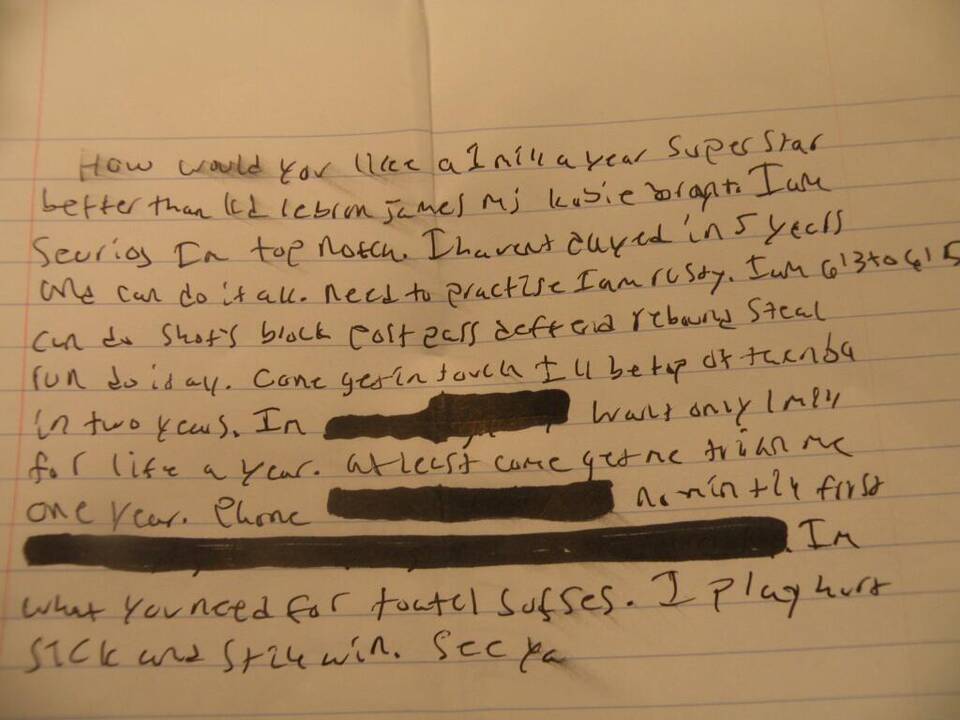 How would you like a 1 mill a year super star
better than kd lebron james mj kobie
Serrios Im top notch. I havent in 5 years
and can do it all. need to practise I am rusty. I am 613 to 615
can do shots block post pass deffend rebound steal
run do it all. Come get in touch I ll be top of
in two years. Im want only 1 mill
for life a year. at least come get me me
one year. Phone first
Im
what you need for toatel sufses. I play hurt
sick and still win. See ya